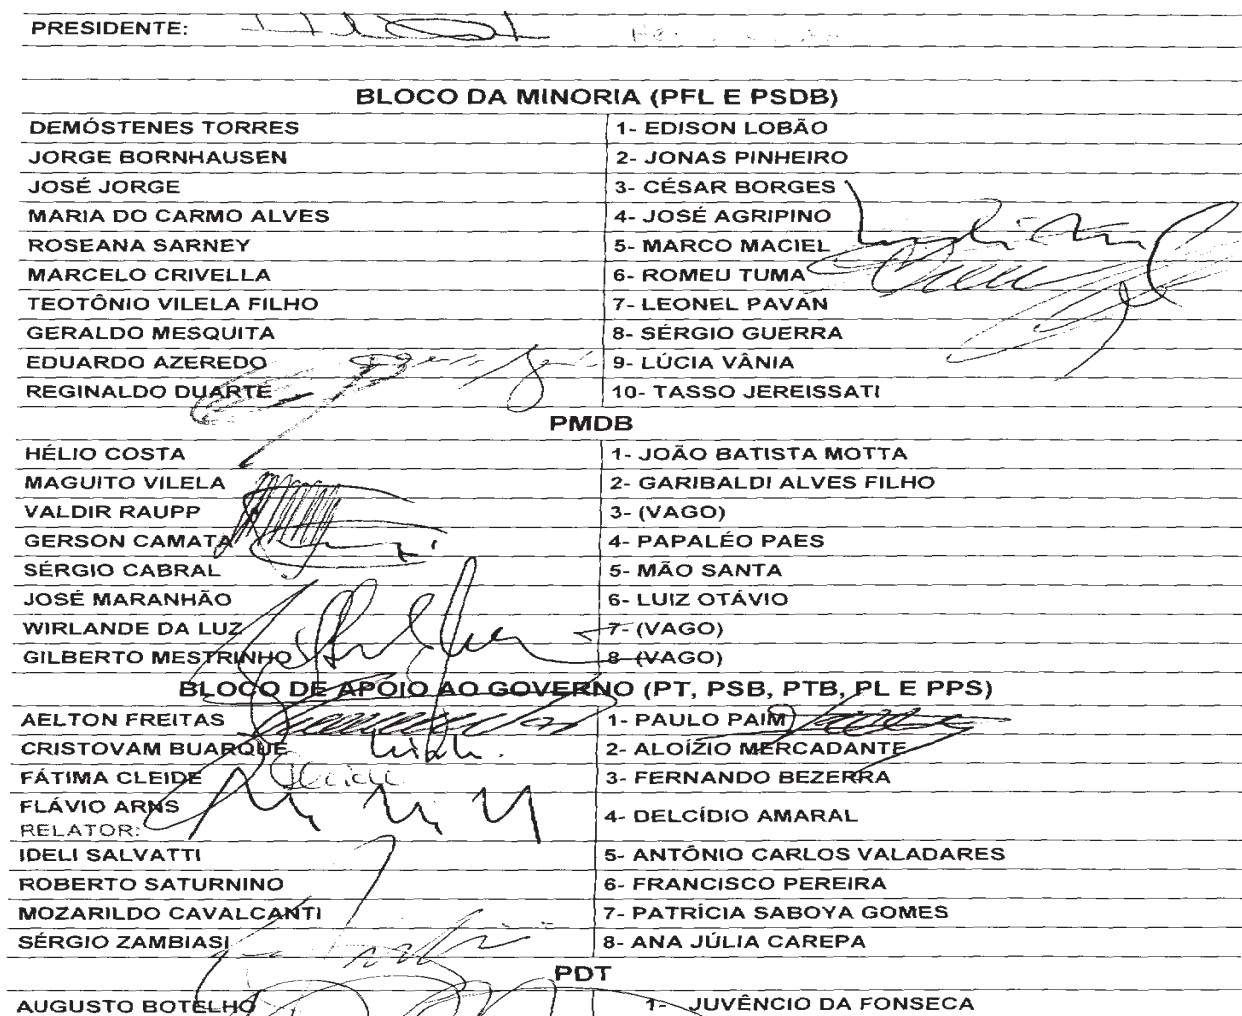 PRESIDENTE:
BLOCO DA MINORIA (PFL E PSDB)
DEMÓSTENES TORRES 1- EDISON LOBÃO
JORGE BORNHAUSEN 2- JONAS PINHEIRO
JOSÉ JORGE 3- CÉSAR BORGES
MARIA DO CARMO ALVES 4- JOSÉ AGRIPINO
ROSEANA SARNEY 5- MARCO MACIEL
MARCELO CRIVELLA 6- ROMEU TUMA
TEOTÔNIO VILELA FILHO 7- LEONEL PAVAN
GERALDO MESQUITA 8- SÉRGIO GUERRA
EDUARDO AZEREDO 9- LÚCIA VÂNIA
REGINALDO DUARTE 10- TASSO JEREISSATI
PMDB
HÉLIO COSTA 1- JOÃO BATISTA MOTTA
MAGUITO VILELA 2- GARIBALDI ALVES FILHO
VALDIR RAUPP 3- (VAGO)
GERSON CAMATA 4- PAPALÉO PAES
SÉRGIO CABRAL 5- MÃO SANTA
JOSÉ MARANHÃO 6- LUIZ OTÁVIO
WIRLANDE DA LUZ 7- (VAGO)
GILBERTO MESTRINHO 8- (VAGO)
BLOCO DE APOIO AO GOVERNO (PT, PSB, PTB, PL E PPS)
AELTON FREITAS 1- PAULO PAIM
CRISTOVAM BUARQUE 2- ALOÍZIO MERCADANTE
FÁTIMA CLEIDE 3- FERNANDO BEZERRA
FLÁVIO ARNS 4- DELCÍDIO AMARAL
RELATOR:
IDELI SALVATTI 5- ANTÔNIO CARLOS VALADARES
ROBERTO SATURNINO 6- FRANCISCO PEREIRA
MOZARILDO CAVALCANTI 7- PATRÍCIA SABOYA GOMES
SÉRGIO ZAMBIASI 8- ANA JÚLIA CAREPA
PDT
AUGUSTO BOTELHO 1- JUVÊNCIO DA FONSECA